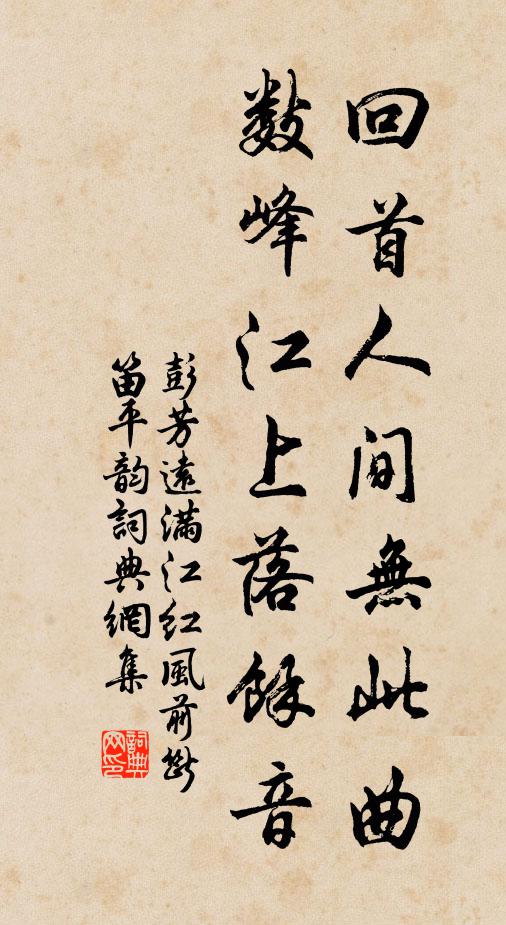 回首人间無此曲
数峰江上落餘音
彭芳遠满江红風前斷
笛平韵詞典網集
詞典網印